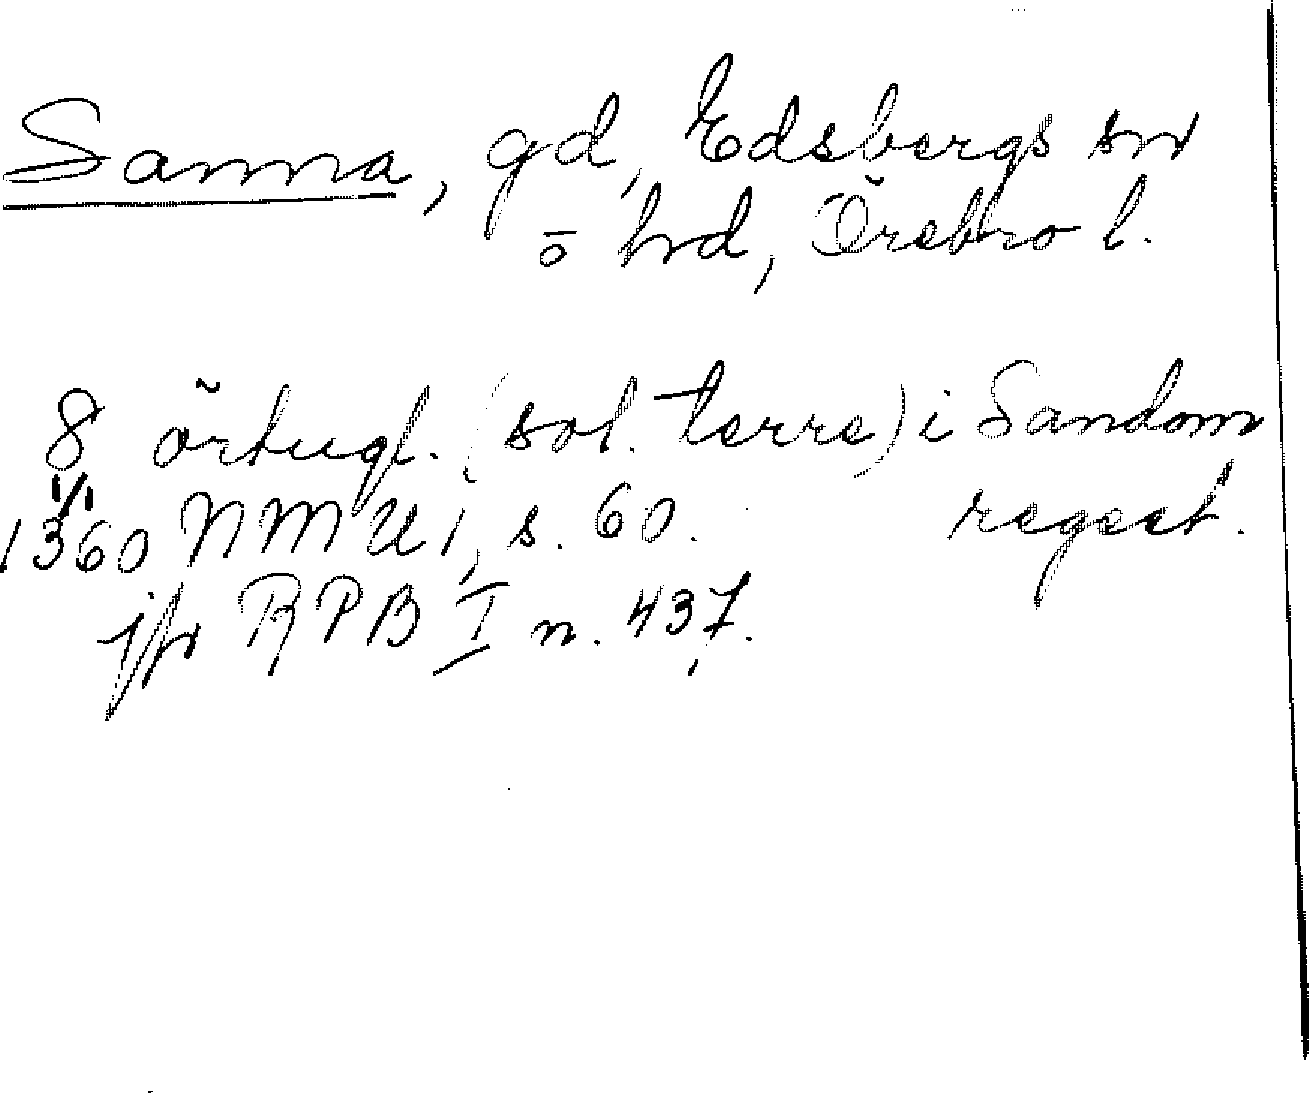 Sanna, gd, Edsbergs sn
o hd, Örebro l.
8 örtugl. (sol. terre) i Sandom
1/1
1360 NMU 1, s. 60. regest.
jfr RPB I n. 437.